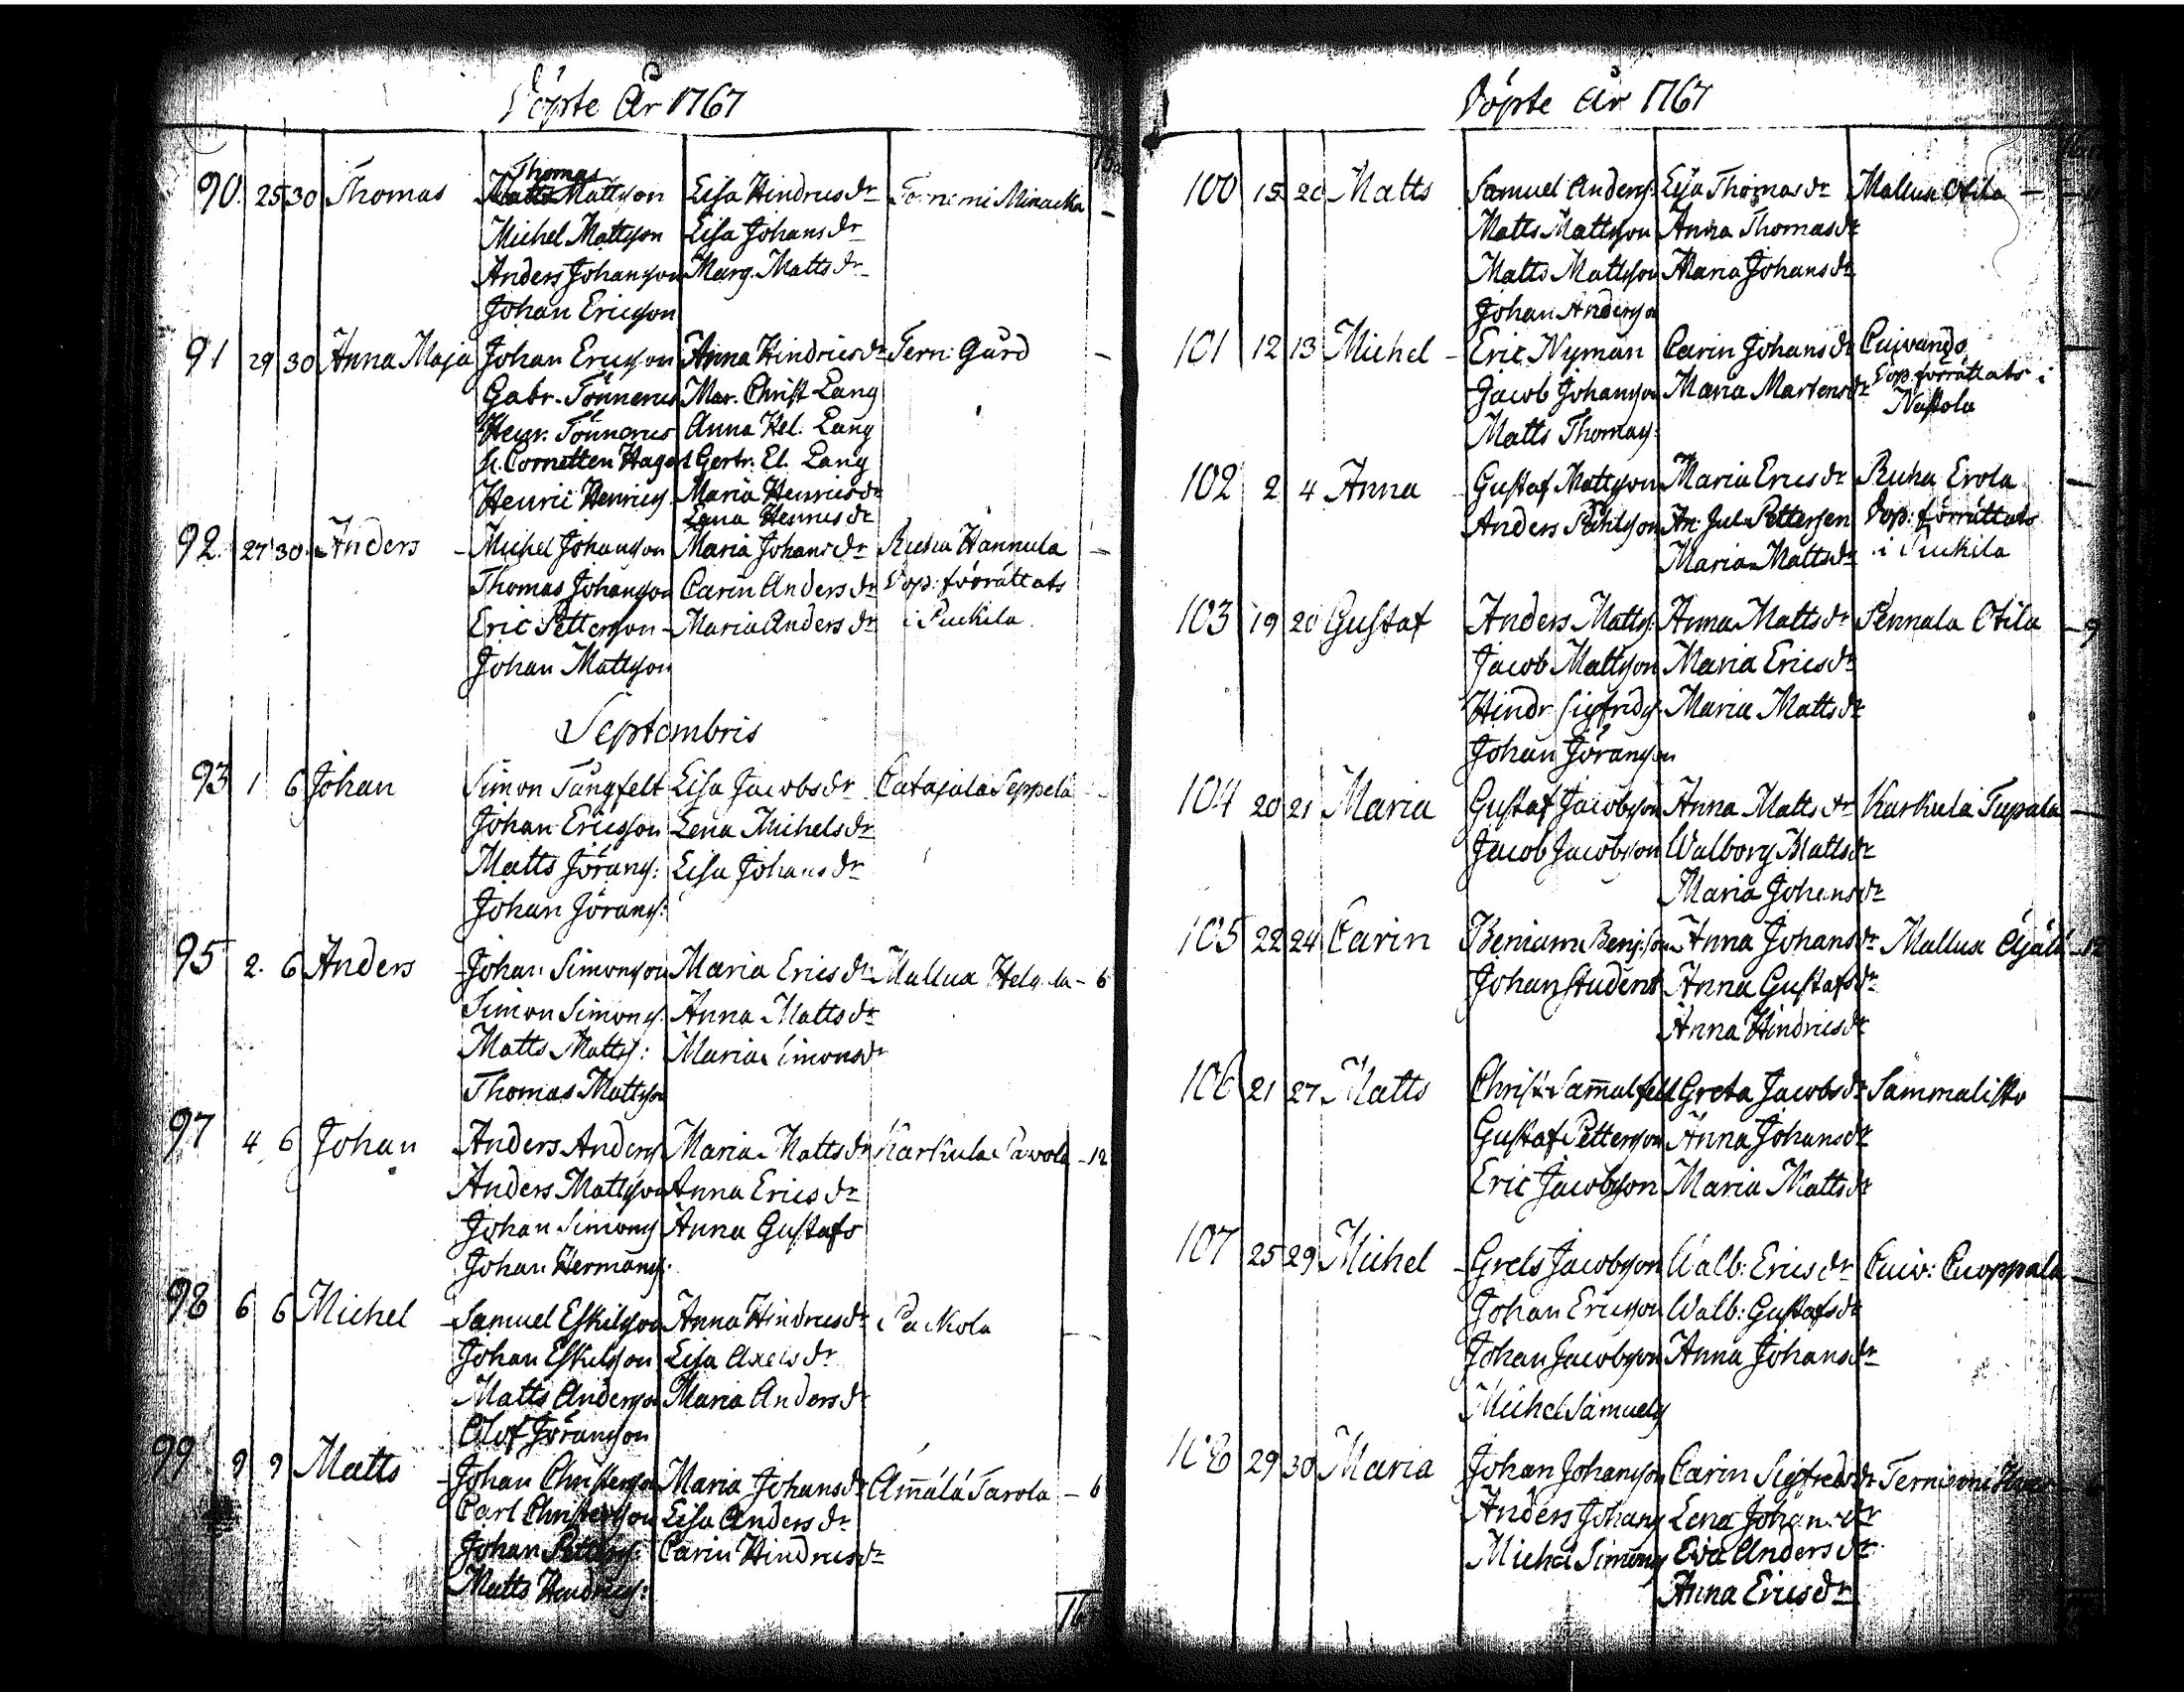 Döpte År 1767
Thomas
90. 25 30 Thomas Matts Mattsson Lisa Hindricsdr
Michel Mattsson Lisa Johansdr
Anders Johansson Marg. Mattsdr
Johan Ericsson
91 29 30 Anna Maja Johan Ericsson Anna Hindricsdr Tern: Gård –
Gabr. Tönnerus Mar. Christ Lang
Henr. Tönnerus Anna Hel. Lang
H. Cornetten Hagert Gertr. El. Lang
Henric Henrics. Maria Henricsdr
Lena Henricsdr
92. 27 30 Anders – Michel Johansson Maria Johansdr Ruha Hannula –
Thomas Johansson Carin Andersdr Dop: förrättats
Eric Pettersson – Maria Andersdr i Puckila.
Johan Mattsson
Septembris
93 1 6 Johan Simon Tungfelt Lisa Jacobsdr Catajala Seppelä
Johan Ericsson Lena Michelsdr
Matts Jörans: Lisa Johansdr
Johan Jörans:
95 2. 6 Anders Johan Simonsson Maria Ericsdr Mallua – 6
Simon Simons. Anna Mattsdr
Matts Matts: Maria Simonsdr
Thomas Mattsson
97 4 6 Johan Anders Anders Maria Mattsdr Karkula Pavola – 12
Anders Mattsson Anna Ericsdr
Johan Simons Anna Gustafs
Johan Hermans:
98 6 6 Michel – Samuel Eskilsson Anna Hindricsdr
Johan Eskilsson Lisa Axelsdr
Matts Andersson Maria Andersdr
Olof Jöransson
99 9 9 Matts – Johan Christersson Maria Johansdr Am̄älä Tarola – 6
Carl Christersson Lisa Andersdr
Johan Petters: Carin Hindricsdr
Matts Hindrics:
16
Döpte År 1767
100 15 20 Matts Samuel Anders: Lisa Thomasdr Mallua Otila –
Matts Mattsson Anna Thomasdr
Matts Mattsson Maria Johansdr
Johan Andersson
101 12 13 Michel – Eric Nyman Carin Johansdr Cuivando
Jacob Johansson Maria Martensdr Dop: förrättats i
Matts Thomas: Nastola
102 2 4 Anna – Gustaf Mattsson Maria Ericsdr Ruha Erola –
Anders Påhlsson An: Jul. Pettersen Dop: förrättats
Maria Mattsdr i Puckila
103 19 20 Gustaf Anders Matts: Anna Mattsdr Pennala Otila – 9
Jacob Mattsson Maria Ericsdr
Hindr Sigfrids. Maria Mattsdr
Johan Jöransson
104 20 21 Maria Gustaf Jacobsson Anna Mattsdr Karkula Tupala –
Jacob Jacobsson Walborg Mattsdr
Maria Johansdr
105 22 24 Carin Beniamin Benj: son Anna Johansdr Mallua
Johan Student Anna Gustafsdr
Anna Hindricsdr
106 21 27 Matts Christ: Sam̄alfelt Greta Jacobsdr Sammalisto –
Gustaf Pettersson Anna Johansdr
Eric Jacobsson Maria Mattsdr
107 25 29 Michel – Grels Jacobsson Walb: Ericsdr Cuiv: Cuoppala –
Johan Ericsson Walb: Gustafsdr
Johan Jacobsson Anna Johansdr
Michel Samuels
108 29 30 Maria Johan Johansson Carin Sigfredsdr
Anders Johans Lena Johansdr
Michel Simons Eva Andersdr
Anna Ericsdr